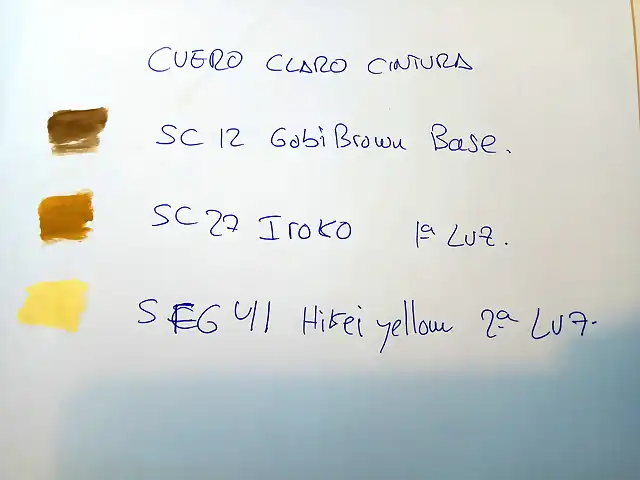 CUERO CLARO CINTURA
SC 12 Gobi Brown Base.
SC 27 Iroko 1ª LUZ.
SFG 41 Hikei yellow 2ª LUZ.